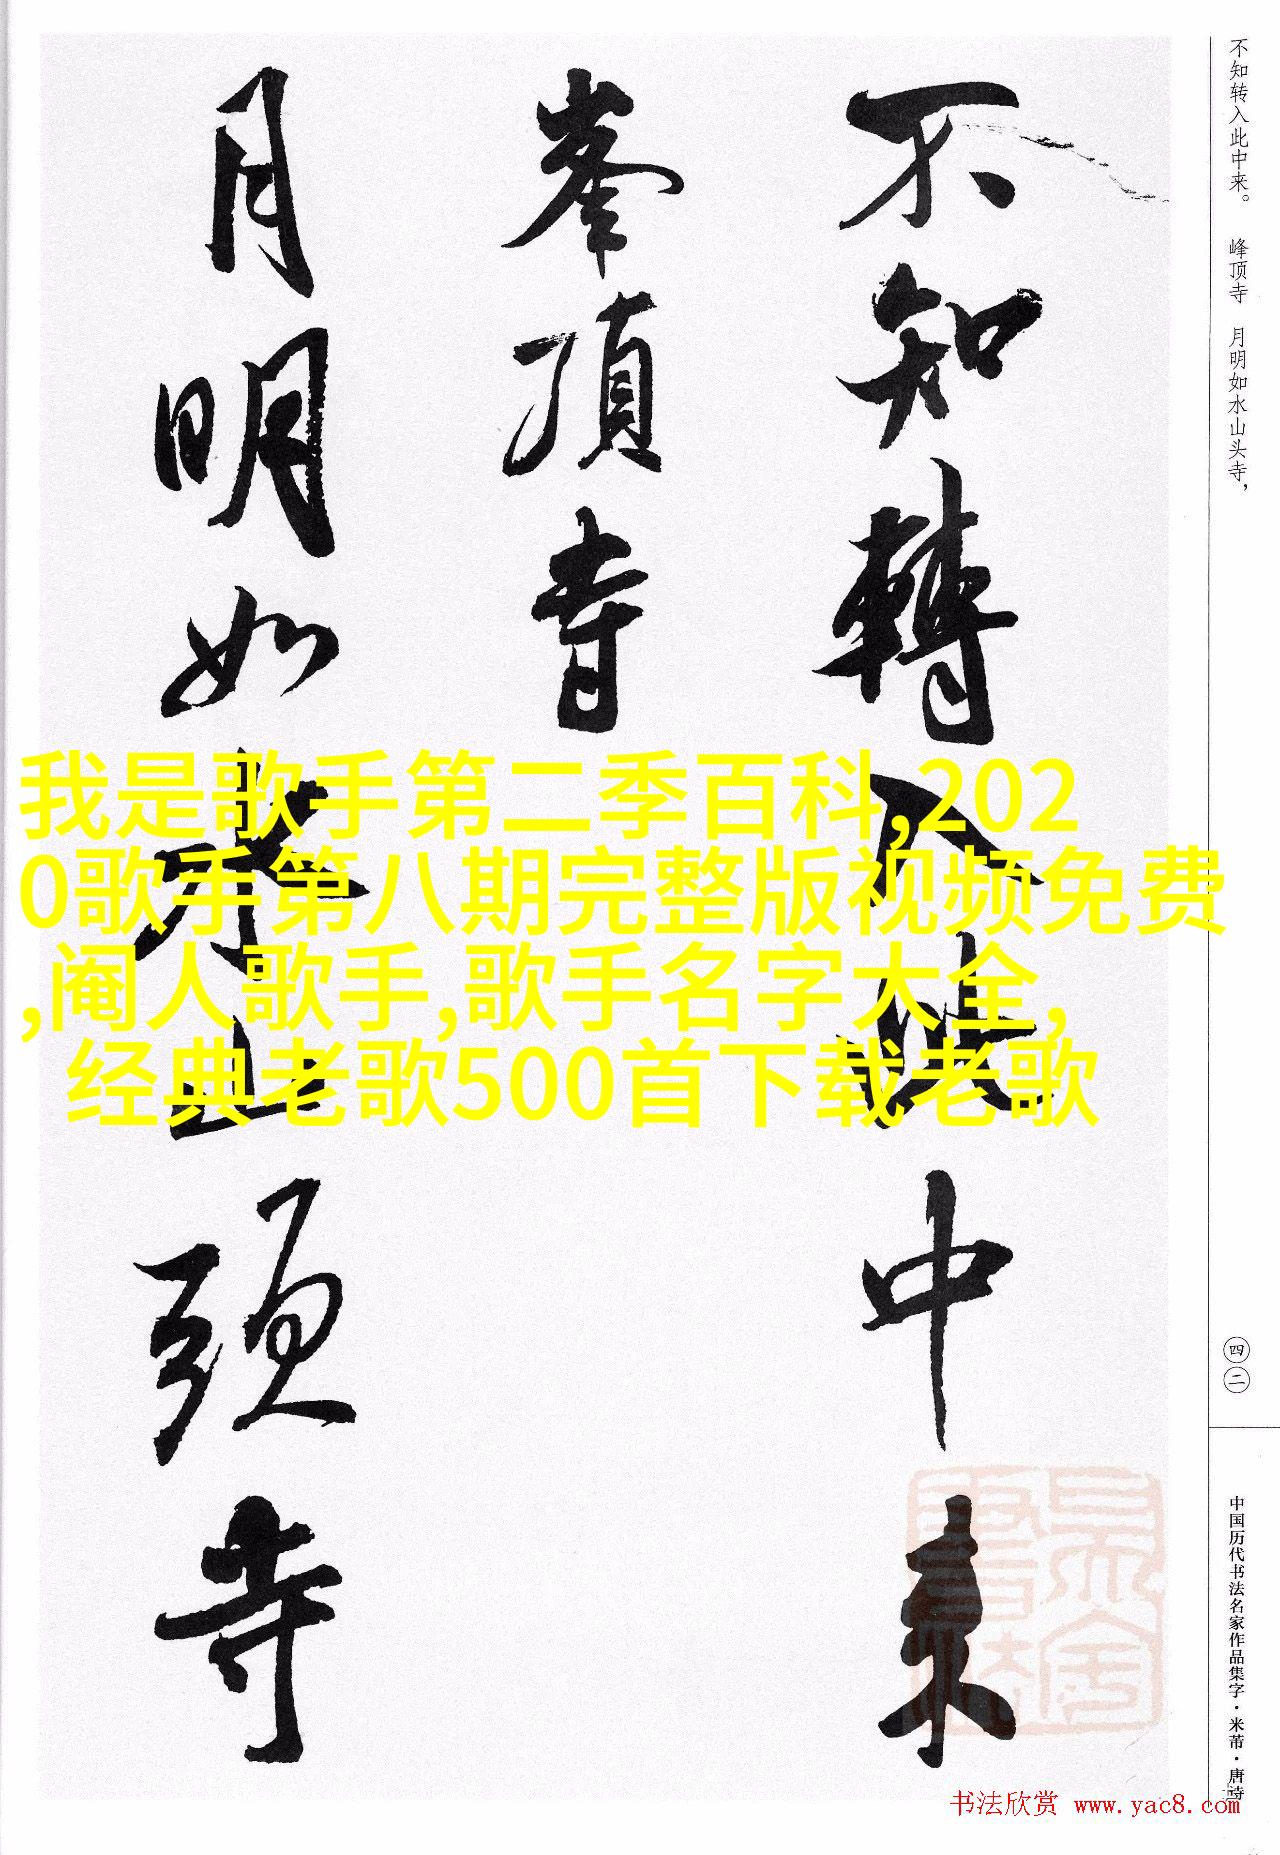 不知轉入此中来
峯頂寺
月明如水山頭寺
不知转入此中来。 峰顶寺 月明如水山头寺,
四二
中国历代书法名家作品集字·米芾·唐诗
我是歌手第二季百科,202
0歌手第八期完整版视频免费
,阉人歌手,歌手名字大全,
经典老歌500首下载老歌
书法欣赏 www.yac8.com